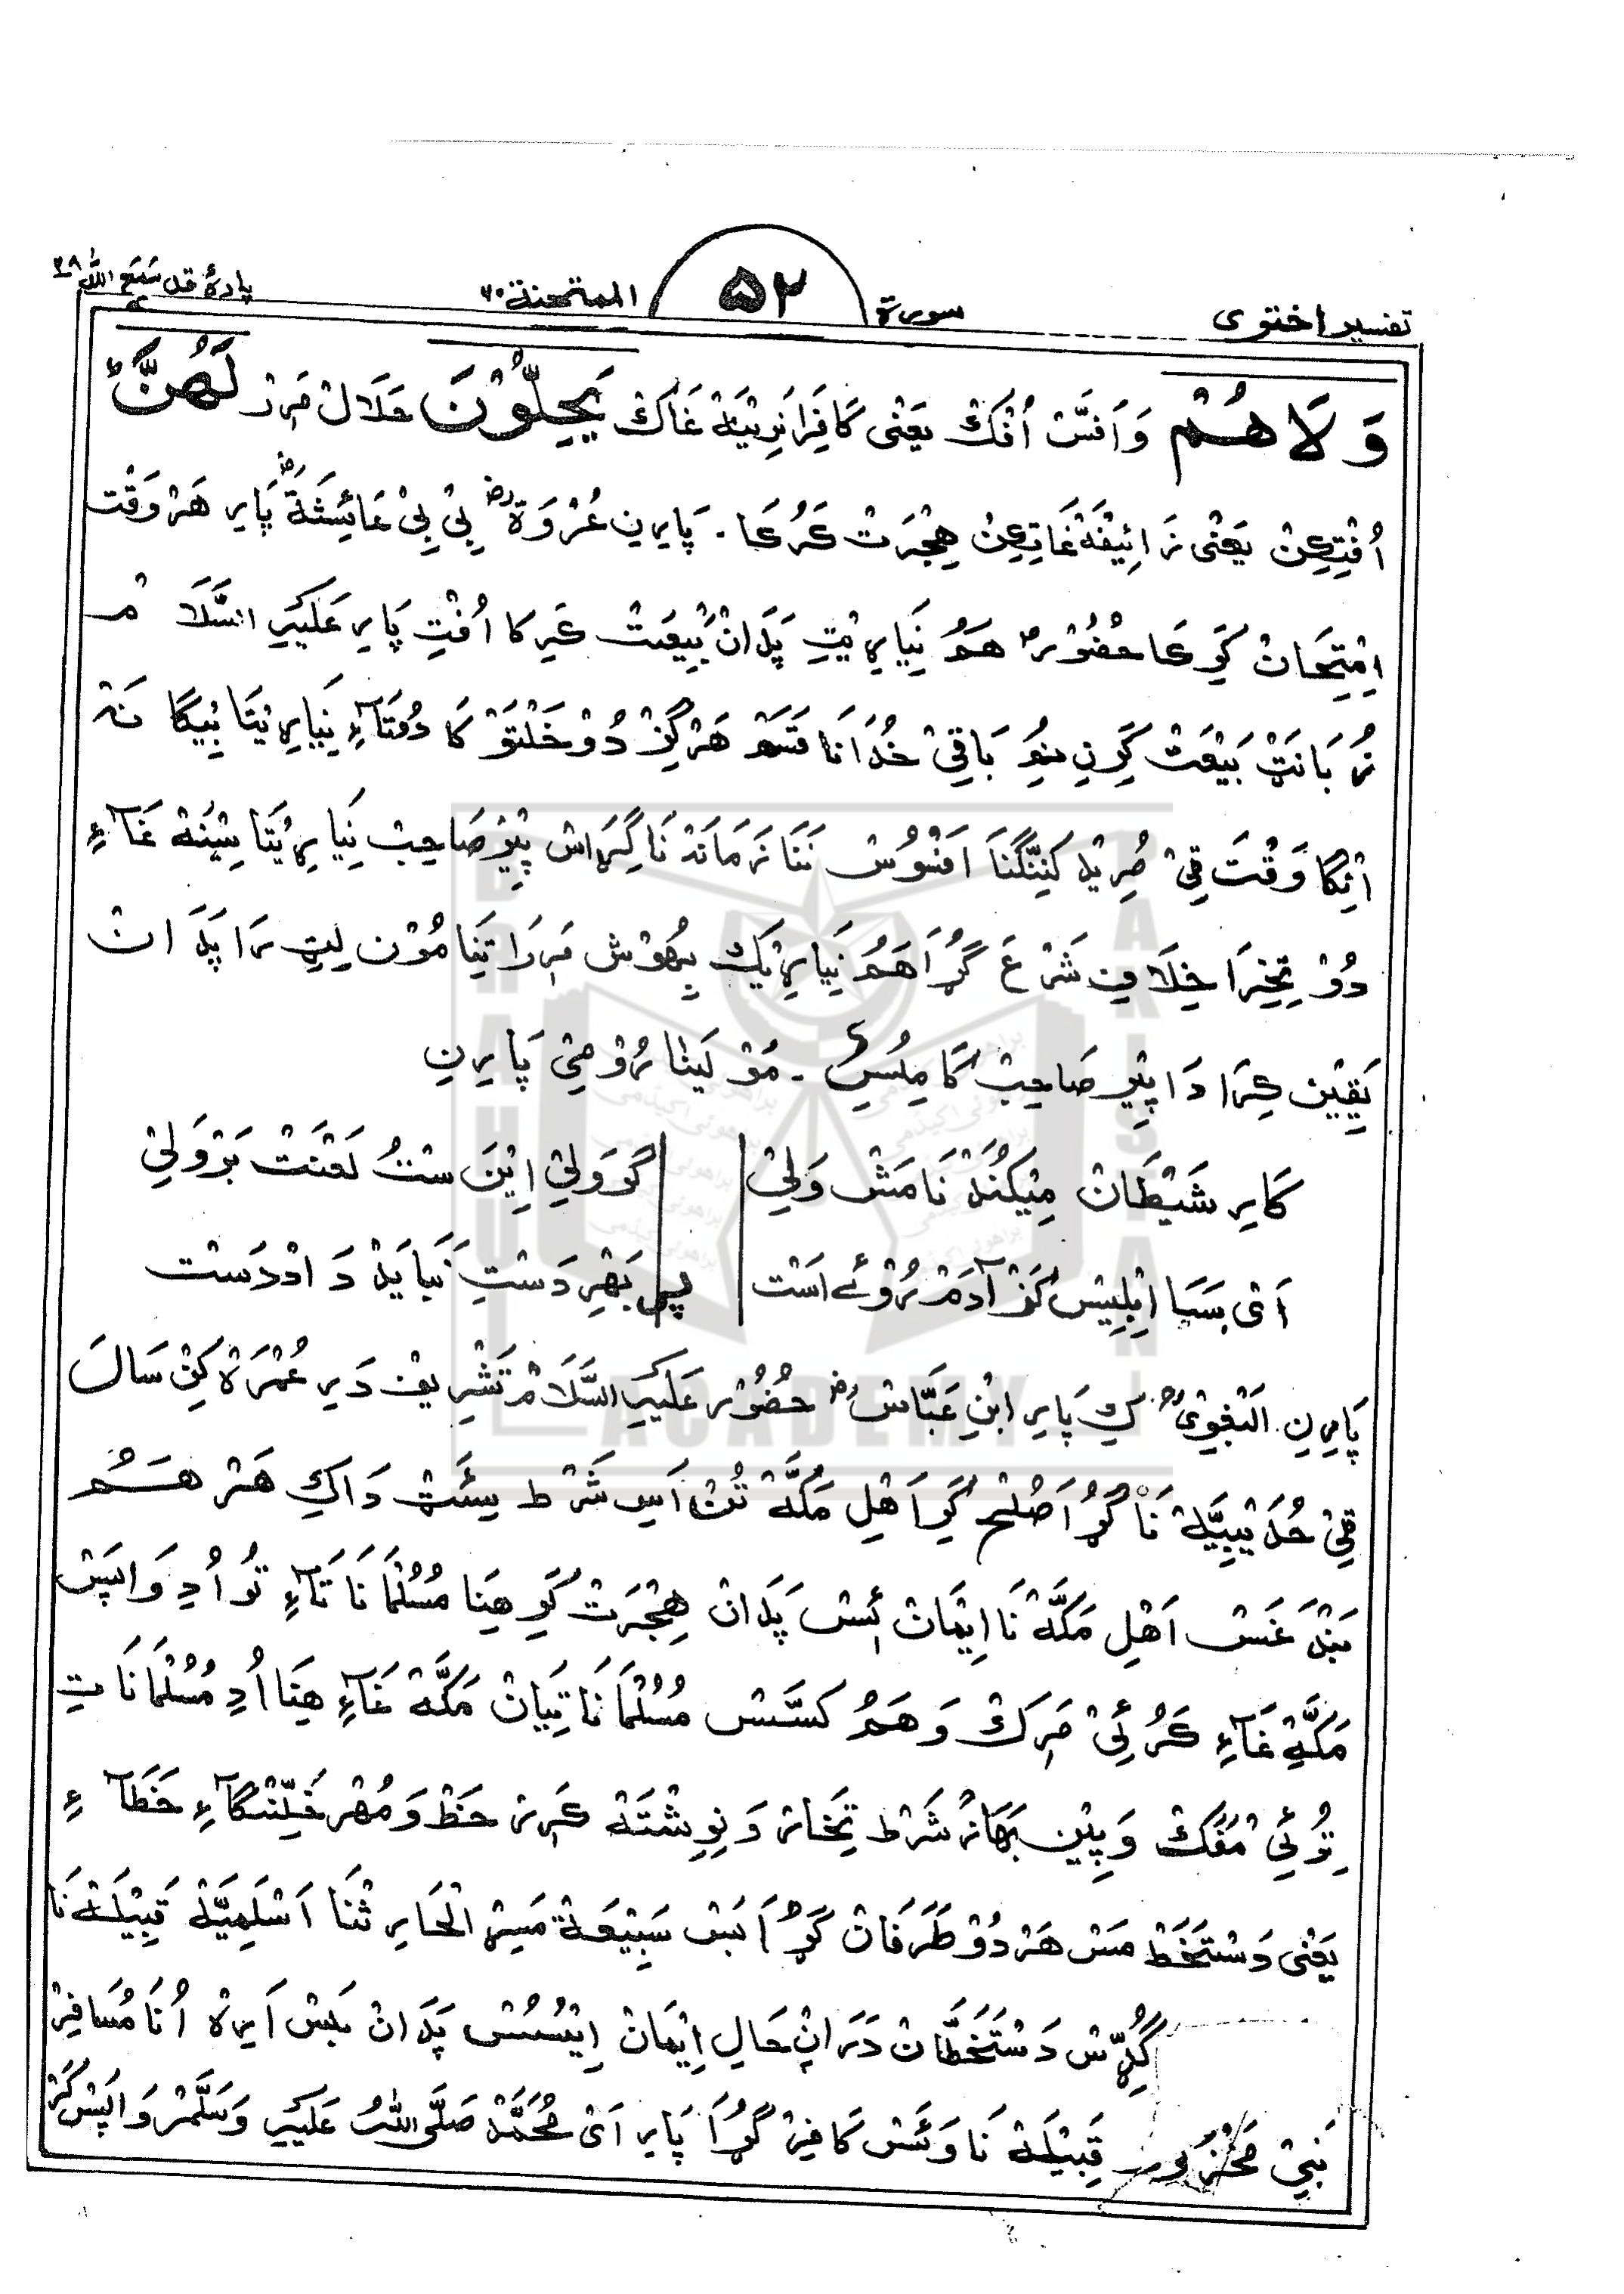 تفسیر اختوی سورة ۵۲ الممتحنة ۶۰ پارۀ قد سمع الله ۲۸
وَلَاهُمْ وَاَفَسْ اُفْكْ یَعْنٰی كَافِرَا نَرِیْنَهْ غَاكْ یَحِلُّوْنَ حَلَالْ مَرِرْ لَهُنَّ ط
اُفْتِكِنْ یَعْنٰی زَائِیْفَهْ غَاتِكِنْ هِجْرَتْ كَرُكَا۔ پَارِینِ عُرْوَةْ رض بِیْ بِیْ عَائِشَةْ رض پَارِ هَرْ وَقْت
اِمْتِحَانْ كَرِكَا حُضُوْر هَمُ نِیَارِیْتِ پَدَانْ بَیْعَتْ كَرِكَا اُفْتِ پَارِ عَلَیْهِ السَّلَامْ
زُبَانَتْ بَیْعَتْ كَرِنِ بَاقِیْ خُدَانَا قَسَمْ هَرْگِزْ دُوْ خَلْتَوْ كَا دُوْتَآءِ نِیَارِیْتَا بِیْكَا نَهْ
اِنِگَا وَقْتَ قِیْ مُرِیْد كَنِنَّگْنَا اَفْسُوْسْ نَنَا زَمَانَهْ نَا گِڑَاسْ پِیْرْ صَاحِبْ نِیَارِیْتَا سِیْنَهْ غَآءِ
دُوْ تِخِرَا خِلَافِ شَرْعَ گُڑَا هَمُ نِیَارِیْكْ بِیْهُوْش مَرِرَا تِنَا مُوْن لِیتِرَا پَدَانْ
یَقِیْن كِرَا دَا پِیْر صَاحِبْ كَامِلُسِ۔ مَوْلَیْنَا رُوْمِیْ پَارِنِ
كَارِ شَیْطَانْ مِیْكُنَدْ نَامَشْ وَلِیْ | گَوْ وَلِیْ اِیْنَ سْتْ لَعْنَتْ بَرْ وَلِیْ
اَیْ بَسَا اِبْلِیْسْ كَزْ آدَمْ رُوْئے اَسْت | پس بَهْرِ دَسْتِ نَبَایَدْ دَادْ دَسْت
پَارِنِ الْبَغَوِیْ كِ پَارِ اِبْنِ عَبَّاسْ رض حُضُوْر عَلَیْهِ السَّلَامْ تَشْرِیْف دَرِ عُمْرَهْ كِنْ سَالَ
قِیْ حُدَیْبِیَّهْ نَا گُڑَا صُلْح كَرِ اَهْلِ مَكَّهْ تُنْ اَسِ شَرْط سِیْئَتْ دَاكِ هَرْ هَمُ
بَنْدَغَسْ اَهْلِ مَكَّهْ نَا اِیْمَانْ ئِسْ پَدَانْ هِجْرَتْ كَرِ هِنَا مُسُلْمَانَا تَآءِ تُو اُدِ وَاپَسْ
مَكَّهْ غَآءِ كَرُئِیْ مَرِكْ وَهَمُ كَسَّسْ مُسُلْمَانَا تِیَانْ مَكَّهْ غَآءِ هِنَا اُدِ مُسُلْمَانَاتِ
تُوْئِیْ مَفَكْ وَپِیْن بَهَازْ شَرْط تِخَارْ وَنِوِشْتَهْ كَرِرْ خَطْ وَمُهْر خَلِّنْگَآءِ خَطَآءِ
یَعْنٰی دَسْتَخَطْ مَسْ هَرْ دُوْ طَرَفَانْ گُڑَا بَسْ سَبِیْعَةْ مَسِڑْ الْحَارِثْنَا اَسْلَمِیَّهْ قَبِیْلَهْ نَا
گُڈِسْ دَسْتَخَطَّانْ دَرَانْ حَالِ اِیْمَانْ اِیْسُسْ پَدَانْ بَسْ اَرِهْ اُنَا مُسَافِرْ
بَنِیْ مَخْزُوْم قَبِیْلَهْ نَا وَئَسْ كَافِرْ گُڑَا پَارِ اَیْ مُحَمَّدْ صَلَّی اللّٰهُ عَلَیْهِ وَسَلَّمْ وَاپَسْ كَرْ